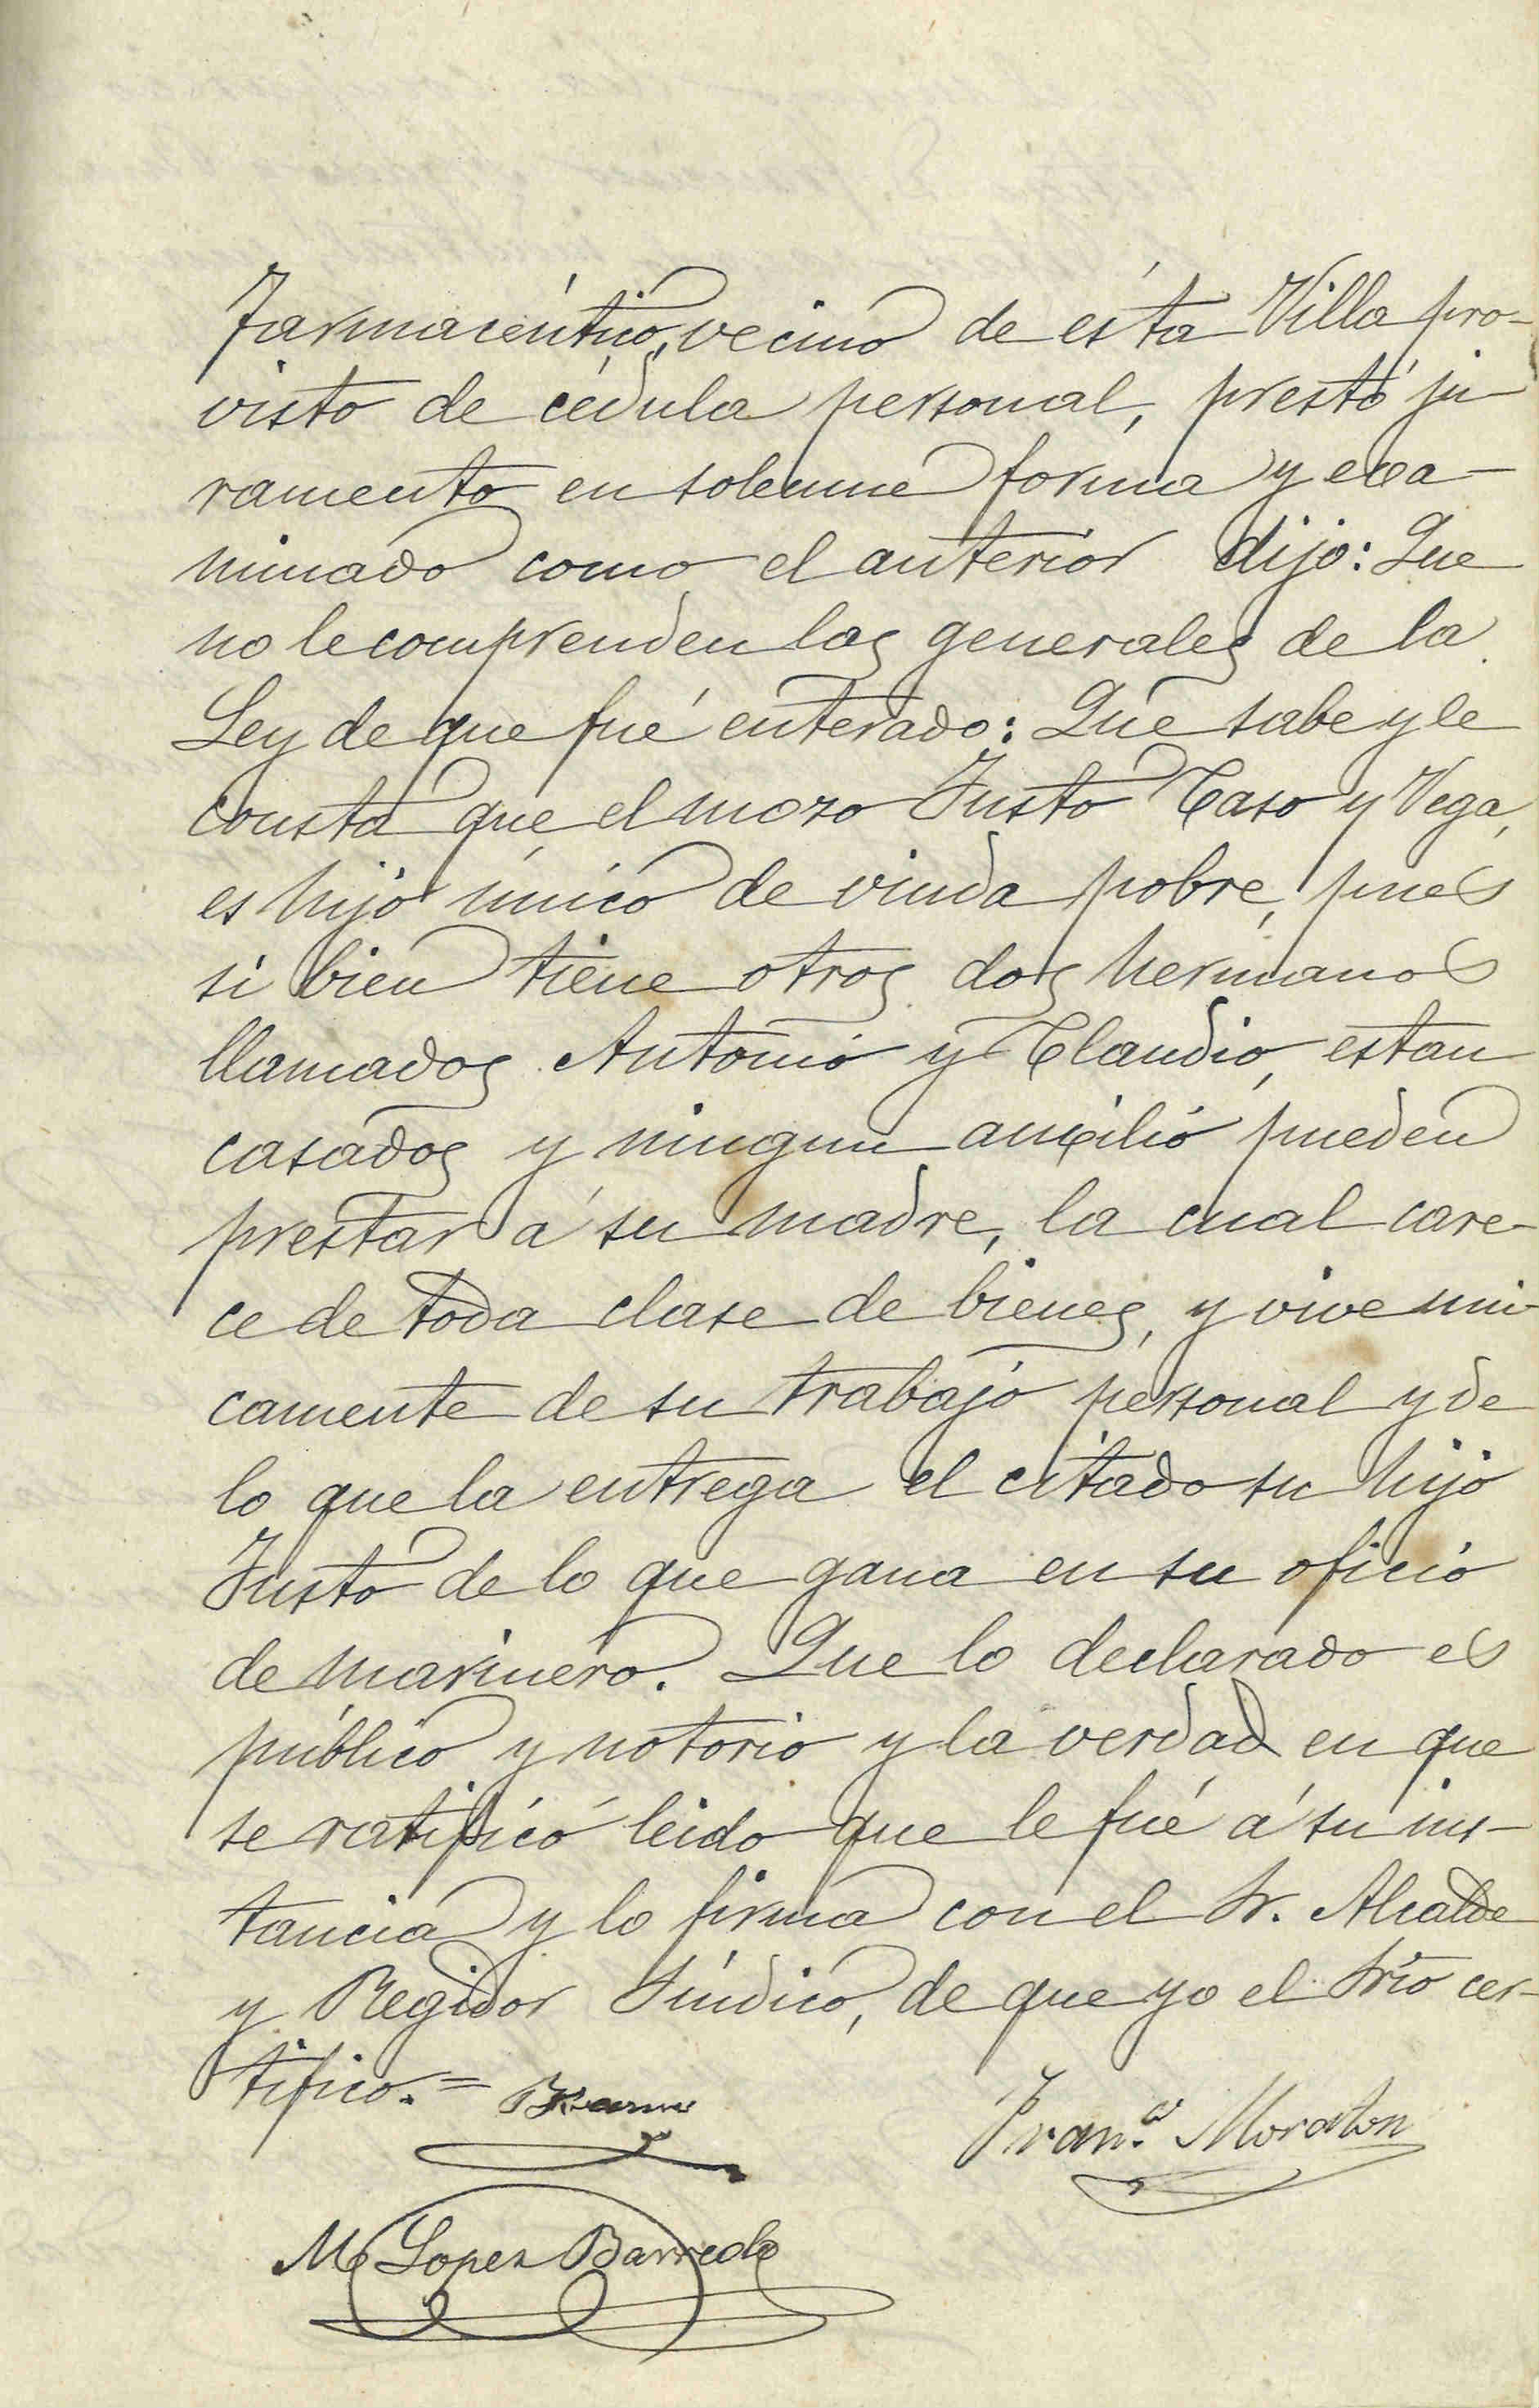 Farmacéutico, vecino de ésta Villa pro-
visto de cédula personal, prestó ju
ramento en solemne forma y exa-
minado como el anterior dijo: Que
no le comprenden las generales de la
Ley de que fué enterado: Que sabe y le
consta que el mozo Justo Caso y Vega,
es hijo único de viuda pobre, pues
si bien tiene otros dos hermanos
llamados Antonio y Claudio, estan
casados y ningun auxilio pueden
prestar á su madre, la cual care-
ce de toda clase de bienes, y vive uni-
camente de su trabajo personal y de
lo que la entrega el citado su hijo
Justo de lo que gana en su oficio
de marinero. Que lo declarado es
público y notorio y la verdad en que
se ratificó leido que le fué á su ins-
tancia y lo firma con el Sr. Alcalde
y Regidor Síndico, de que yo el Srio cer-
tifico.=
Fran.co Moraton
M Lopez Barredo